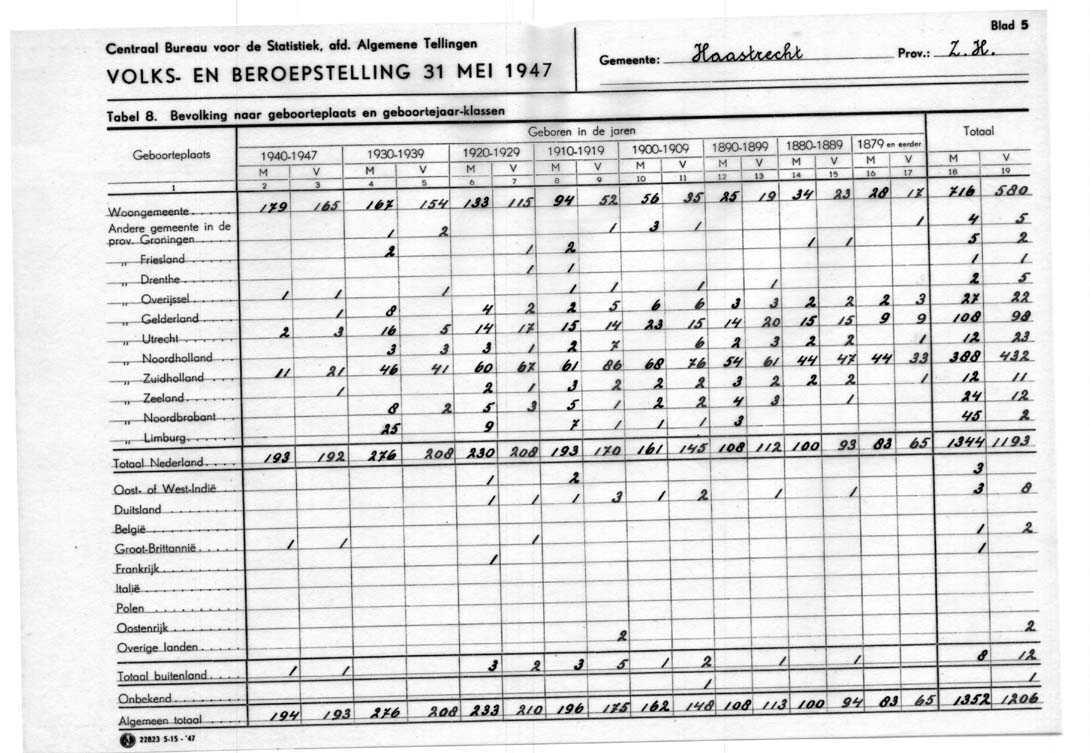 Blad 5
Centraal Bureau voor de Statistiek, afd. Algemene Tellingen
VOLKS- EN BEROEPSTELLING 31 MEI 1947
Gemeente: Haastrecht Prov.: Z.H.
Tabel 8. Bevolking naar geboorteplaats en geboortejaar-klassen
Geboorteplaats Geboren in de jaren Totaal
1940-1947 1930-1939 1920-1929 1910-1919 1900-1909 1890-1899 1880-1889 1879 en eerder
M V M V M V M V M V M V M V M V M V
1 2 3 4 5 6 7 8 9 10 11 12 13 14 15 16 17 18 19
Woongemeente 179 165 167 154 133 115 94 52 56 35 25 19 34 23 28 17 716 580
Andere gemeente in de
prov. Groningen 1 2 1 3 1 1 4 5
„ Friesland 2 1 2 1 1 5 2
„ Drenthe 1 1 1 1
„ Overijssel 1 1 1 1 1 1 1 2 5
„ Gelderland 1 8 4 2 2 5 6 6 3 3 2 2 2 3 27 22
„ Utrecht 2 3 16 5 14 17 15 14 23 15 14 20 15 15 9 9 108 98
„ Noordholland 3 3 3 1 2 7 6 2 3 2 2 1 12 23
„ Zuidholland 11 21 46 41 60 67 61 86 68 76 54 61 44 47 44 33 388 432
„ Zeeland 1 2 1 3 2 2 2 3 2 2 2 1 12 11
„ Noordbrabant 8 2 5 3 5 1 2 2 4 3 1 24 12
„ Limburg 25 9 7 1 1 1 3 45 2
Totaal Nederland 193 192 276 208 230 208 193 170 161 145 108 112 100 93 83 65 1344 1193
Oost- of West-Indië 1 2 3
Duitsland 1 1 1 3 1 2 1 1 3 8
België
Groot-Brittannië 1 1 1 1 2
Frankrijk 1 1
Italië
Polen
Oostenrijk
Overige landen 2 2
Totaal buitenland 1 1 3 2 3 5 1 2 1 1 8 12
Onbekend 1 1
Algemeen totaal 194 193 276 208 233 210 196 175 162 148 108 113 100 94 83 65 1352 1206
22823 5-15 - '47